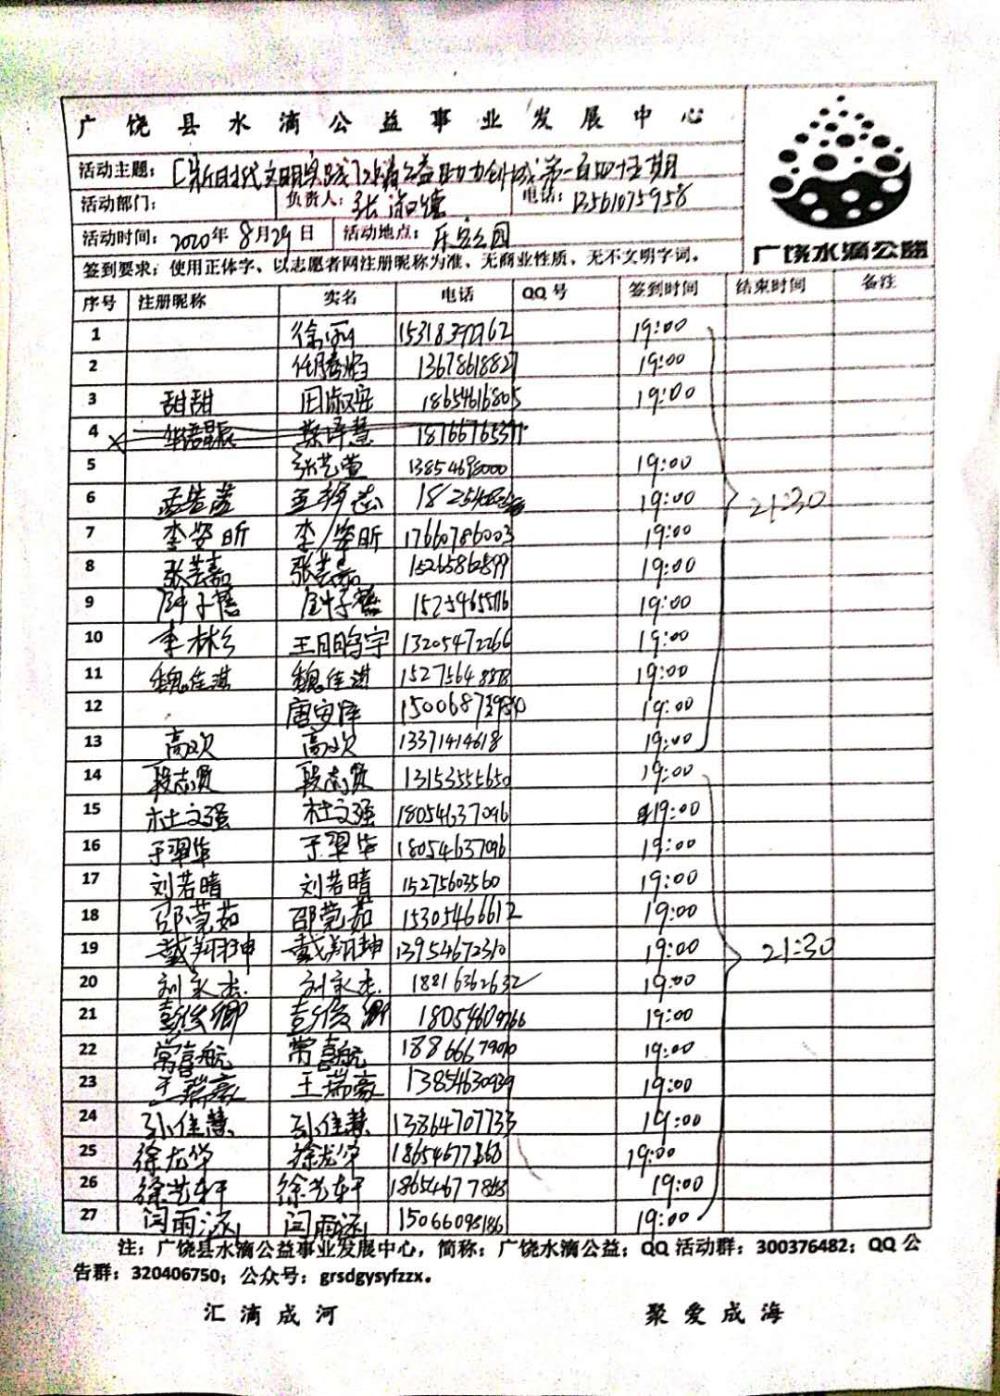 广饶县水滴公益事业发展中心
活动主题：【新时代文明实践】水滴公益助力创城第一百四十五期
活动部门： 负责人：张淑德 电话：13561075958
活动时间：2020年8月29日 活动地点：乐安公园
广饶水滴公益
签到要求：使用正体字、以志愿者网注册昵称为准、无商业性质、无不文明字词。
序号 注册昵称 实名 电话 QQ号 签到时间 结束时间 备注
1 徐 19:00
2 13678618827 19:00
3 甜甜 田淑 18654616805 19:00
4
5 张艺萱 13854698000 19:00
6 19:00 21:30
7 李姿昕 李姿昕 17660786003 19:00
8 张芸嘉 张芸嘉 15265862899 19:00
9 19:00
10 13205472266 19:00
11 魏佳淇 魏佳淇 15275648878 19:00
12 唐安 19:00
13 高欢 高欢 13371414618 19:00
14 段志贤 段志贤 13153555650 19:00
15 杜文强 杜文强 18054637096 19:00
16 于翠华 于翠华 18054637096 19:00
17 刘若晴 刘若晴 15275603560 19:00
18 邵莞茹 邵莞茹 15305466612 19:00
19 戴翔坤 戴翔坤 13954672310 19:00 21:30
20 刘永杰 刘永杰 18816362632 19:00
21 彭俊卿 彭俊卿 18054609766 19:00
22 常喜航 常喜航 19:00
23 王瑞豪 王瑞豪 13854630939 19:00
24 孙佳慧 孙佳慧 13864707733 19:00
25 徐龙华 徐龙华 19:00
26 徐艺轩 徐艺轩 18654677868 19:00
27 闫雨涵 闫雨涵 15066098186 19:00
注：广饶县水滴公益事业发展中心，简称：广饶水滴公益；QQ活动群：300376482；QQ公
告群：320406750；公众号：grsdgysyfzzx。
汇滴成河 聚爱成海